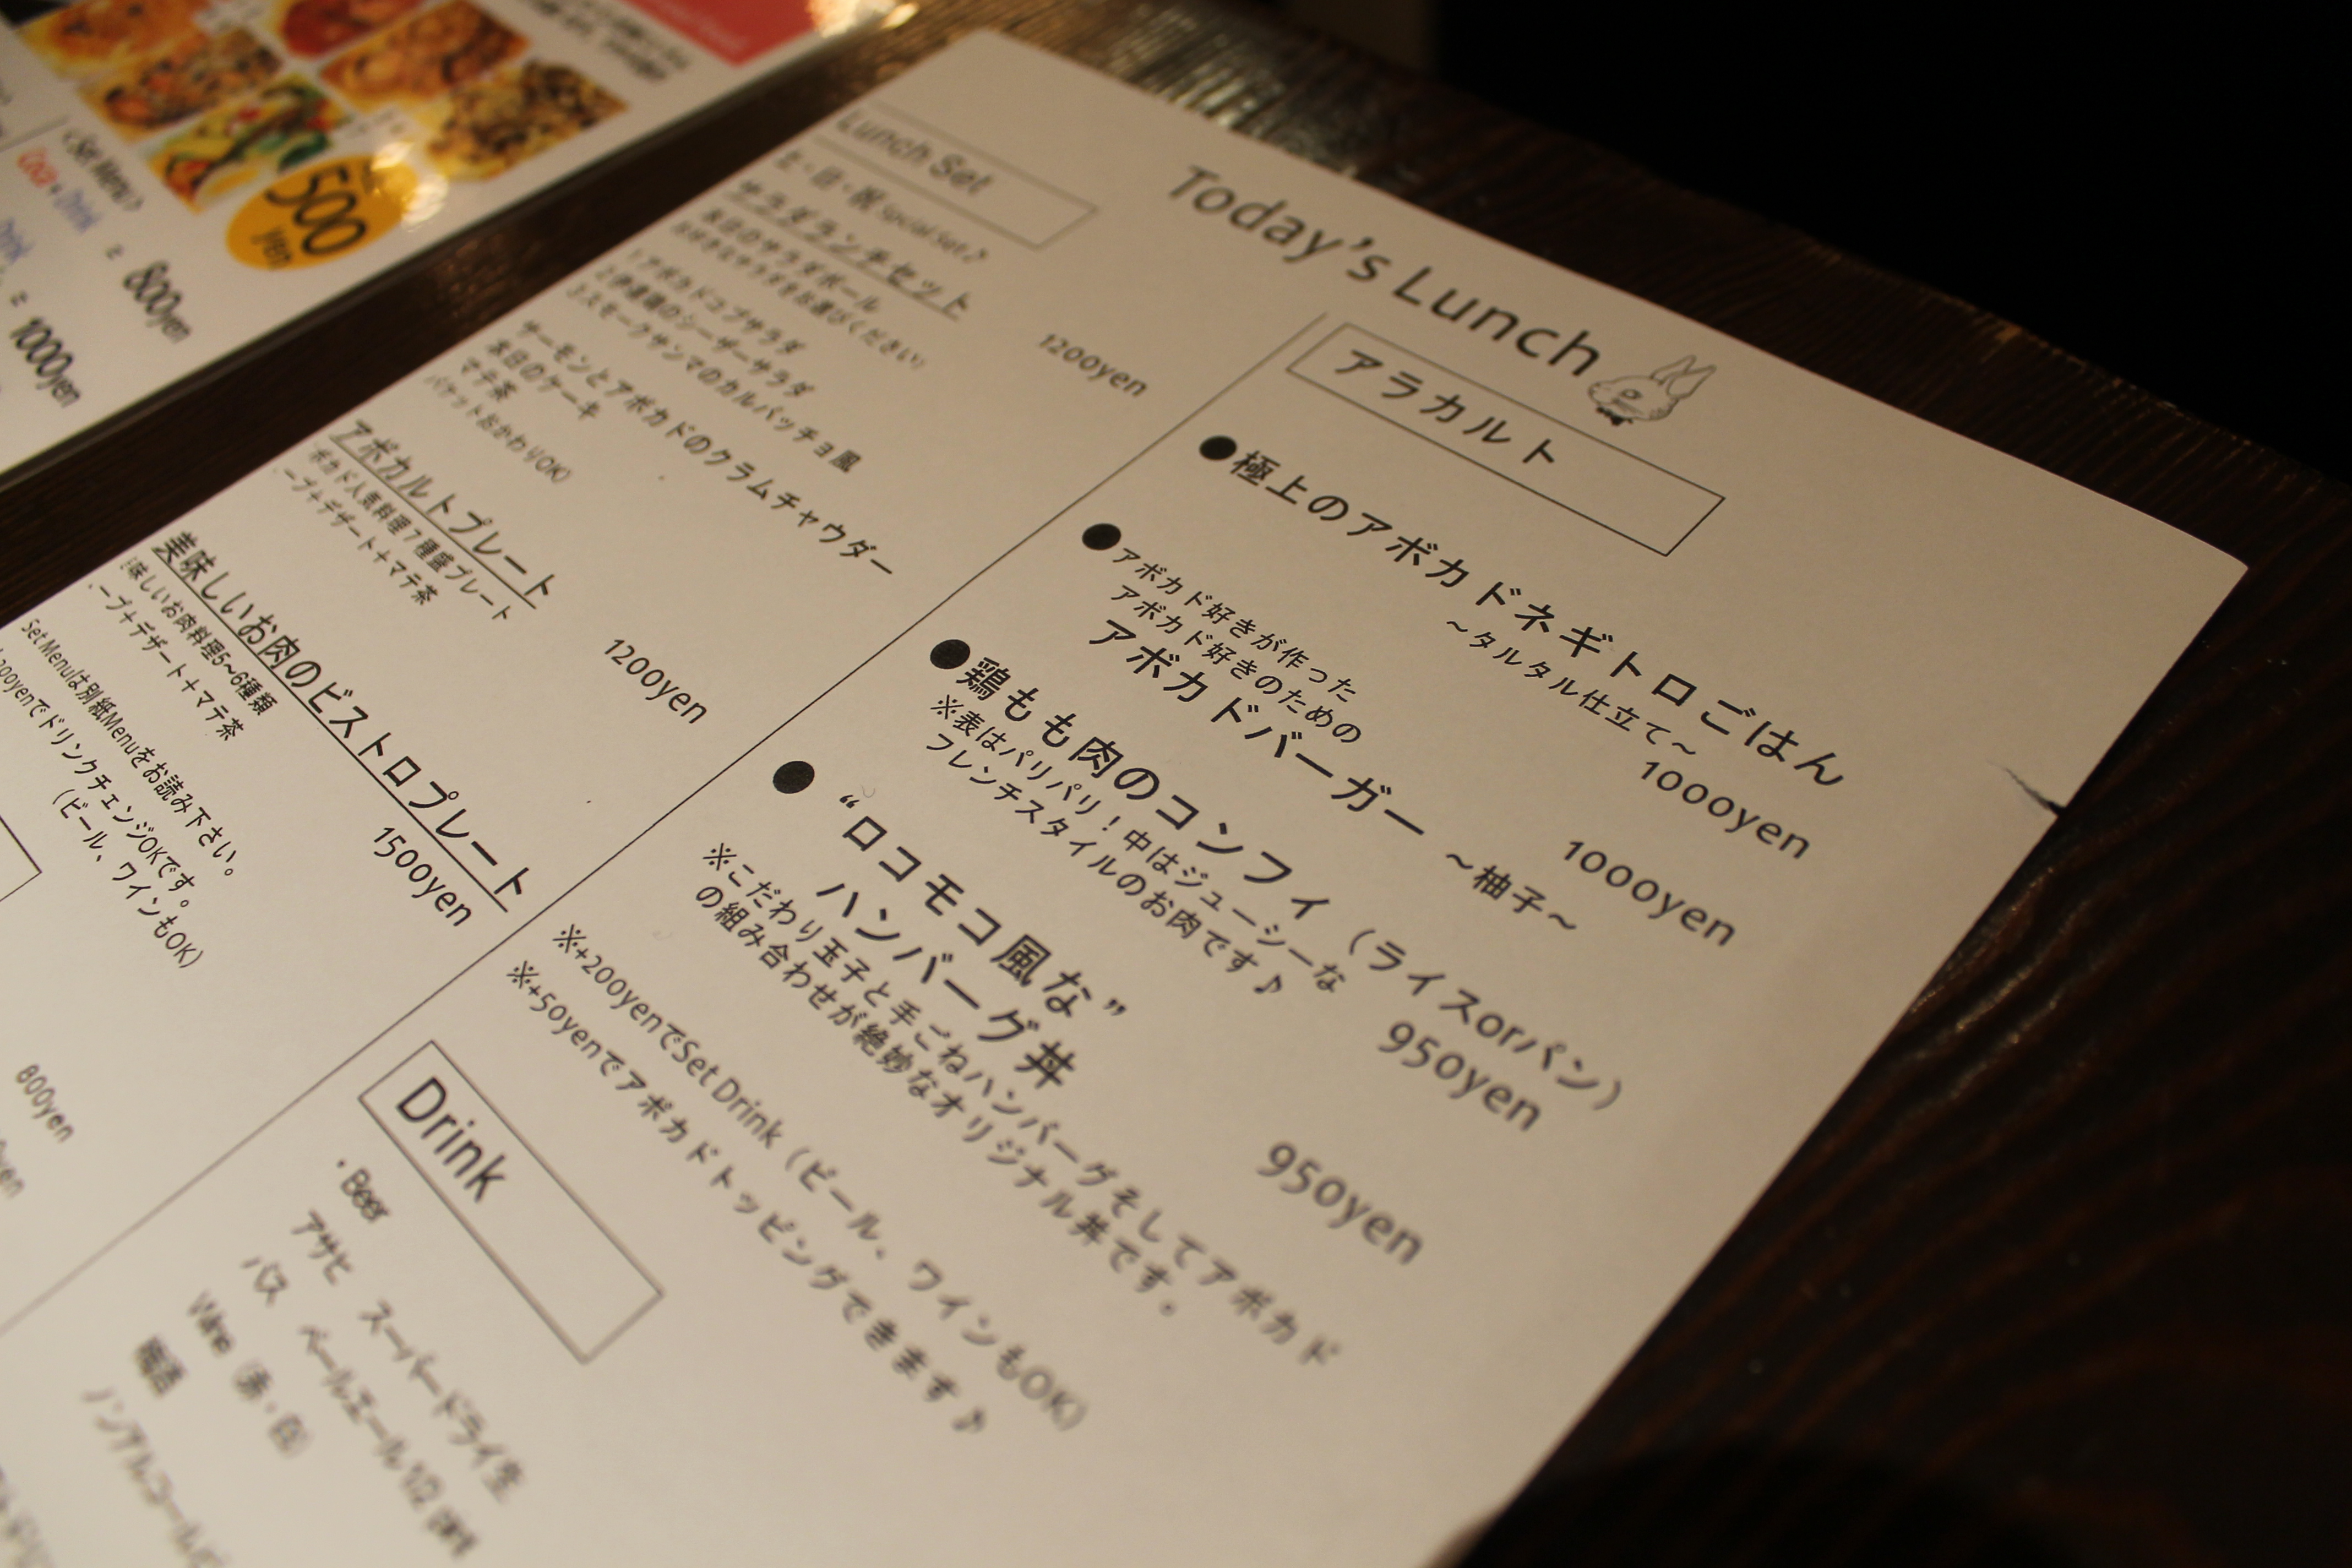 Today's Lunch
Lunch Set
土・日・祝 Special Set♪
サラダランチセット
本日のサラダボール
お好きなサラダをお選びください)
1.アボカドコブサラダ
のシーザーサラダ
3.スモークサンマのカルパッチョ風
サーモンとアボカドのクラムチャウダー
本日のケーキ
マテ茶
バケットおかわりOK)
1200yen
アボカルトプレート
ボカド人気料理7種盛プレート
ープ+デザート+マテ茶
1200yen
美味しいお肉のビストロプレート
味しいお肉料理5~6種類
ープ+デザート+マテ茶
1500yen
Set Menuは別紙Menuをお読み下さい。
200yenでドリンクチェンジOKです。
(ビール、ワインもOK)
800yen
アラカルト
●極上のアボカドネギトロごはん
～タルタル仕立て～
1000yen
●アボカド好きが作った
アボカド好きのための
アボカドバーガー ～柚子～
1000yen
●鶏もも肉のコンフィ (ライスorパン)
※表はパリパリ！中はジューシーな
フレンチスタイルのお肉です♪
950yen
● “ロコモコ風な”
ハンバーグ丼
950yen
※こだわり玉子と手ごねハンバーグそしてアボカド
の組み合わせが絶妙なオリジナル丼です。
※+200yenでSet Drink (ビール、ワインもOK)
※+50yenでアボカドトッピングできます♪
Drink
・Beer
アサヒ スーパードライ生
バス ペールエール 1/2 pint
Wine (赤・白)
梅酒
ノンアルコールビ
500
yen
<Set Menu>
Coca + Drink = 800yen
Drink
= 1000yen